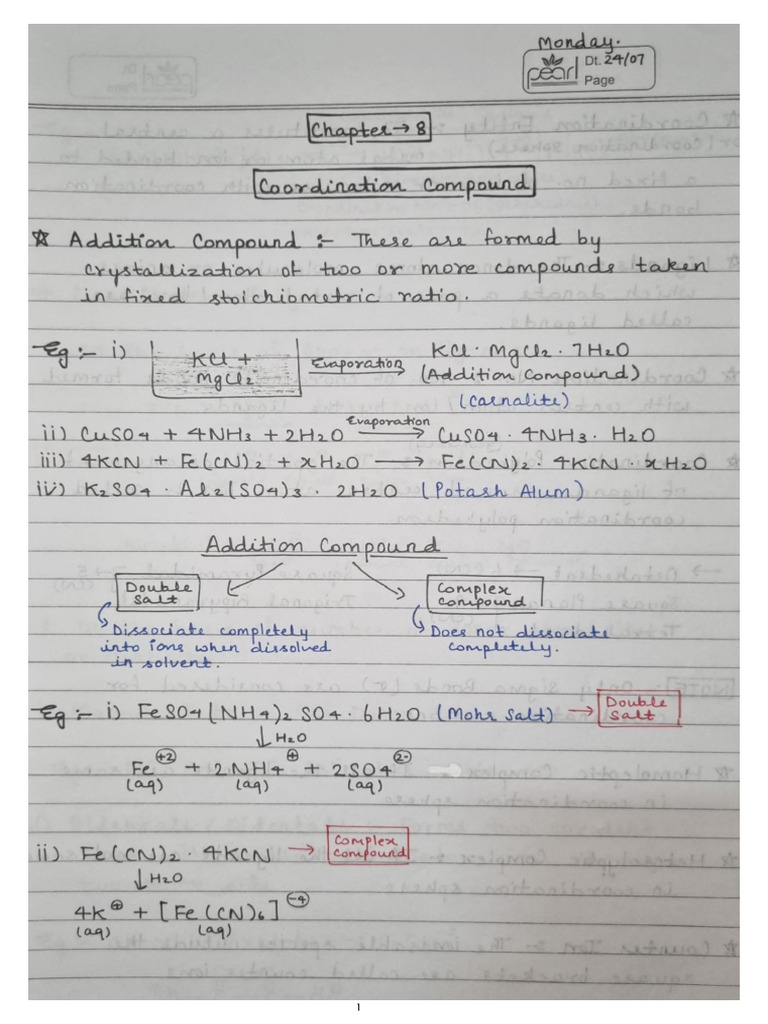 Monday.
pearl Dt. 24/07
Page
Chapter → 8
Coordination Compound
☆ Addition Compound :- These are formed by
crystallization of two or more compounds taken
in fixed stoichiometric ratio.
Eg :- i) KCl + MgCl2 Evaporation → KCl · MgCl2 · 7H2O
(Addition Compound)
(Carnalite)
ii) CuSO4 + 4NH3 + 2H2O Evaporation → CuSO4 · 4NH3 · H2O
iii) 4KCN + Fe(CN)2 + xH2O → Fe(CN)2 · 4KCN · xH2O
iv) K2SO4 · Al2(SO4)3 · 2H2O (Potash Alum)
Addition Compound
Double Salt
Complex compound
Dissociate completely
into ions when dissolved
in solvent.
Does not dissociate
completely.
Eg :- i) FeSO4(NH4)2 SO4 · 6H2O (Mohr Salt) → Double Salt
↓ H2O
Fe +2 (aq) + 2NH4 + (aq) + 2SO4 2- (aq)
ii) Fe(CN)2 · 4KCN → Complex Compound
↓ H2O
4K + (aq) + [Fe(CN)6] -4 (aq)
1